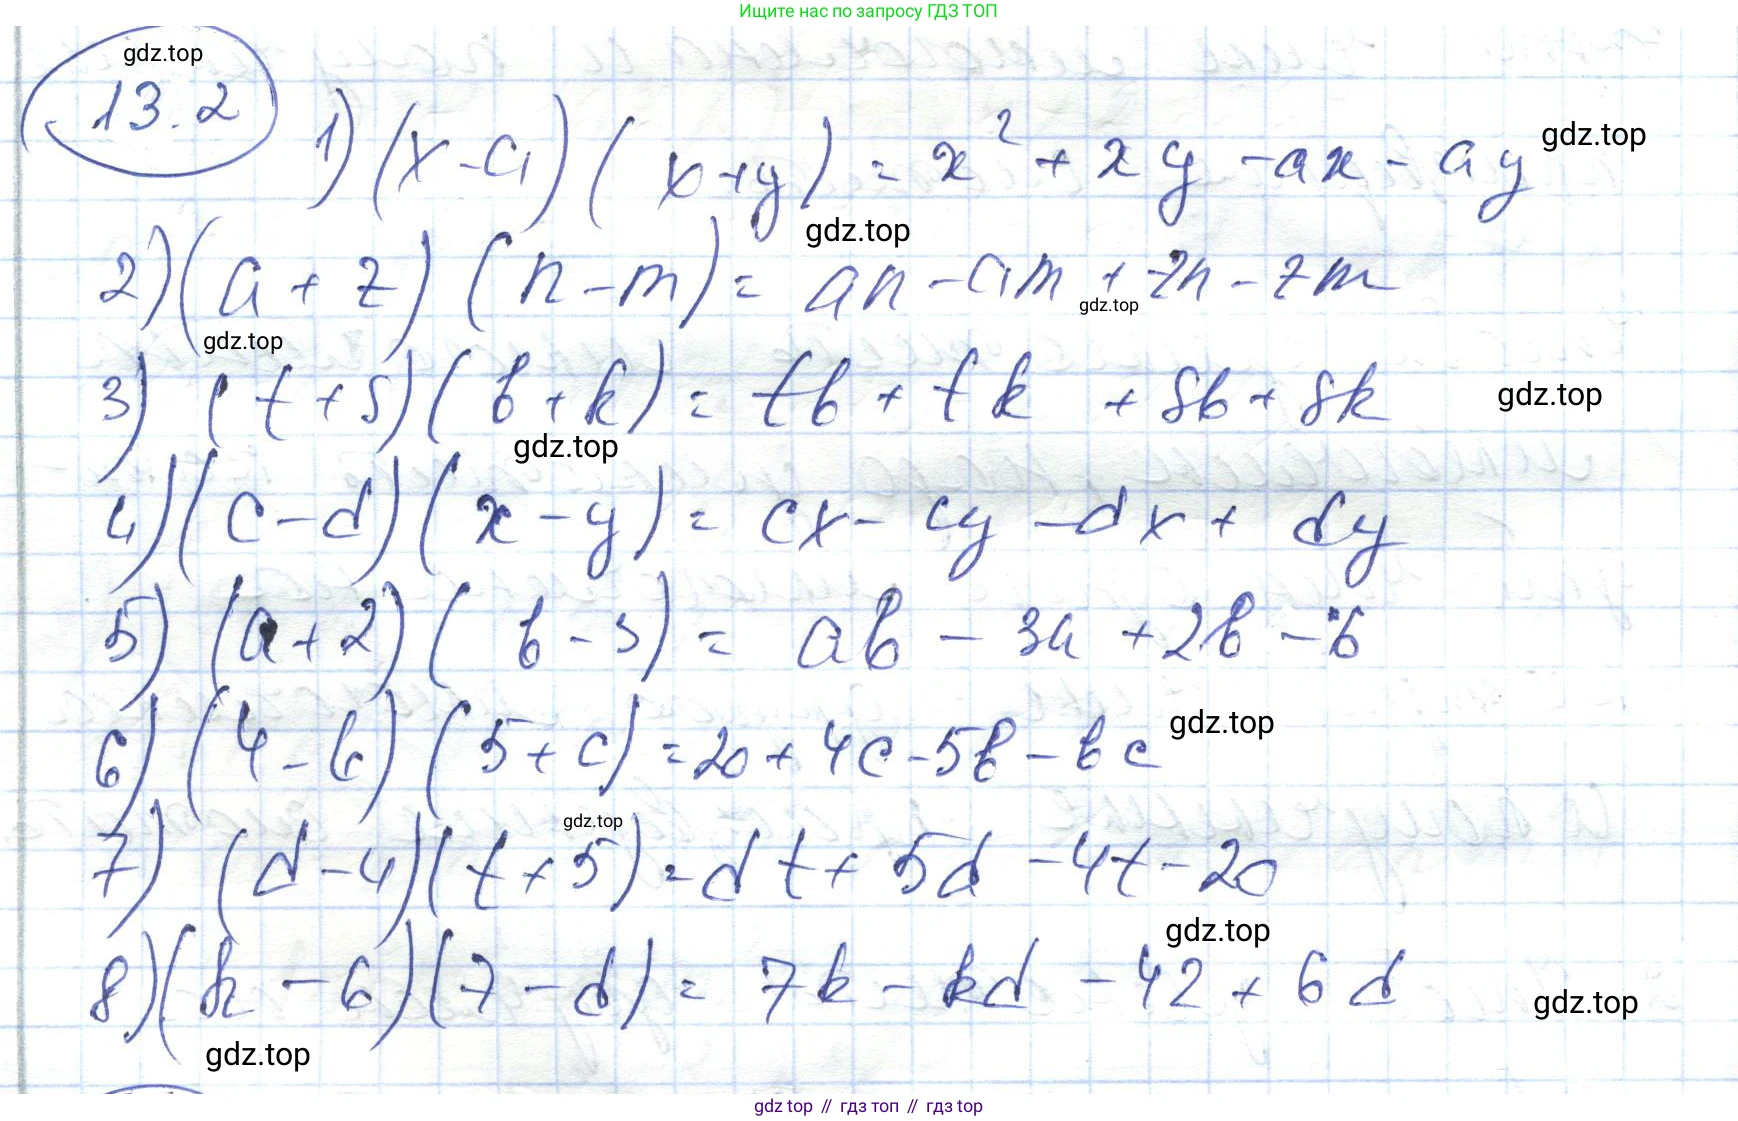 Ищите нас по запросу ГДЗ ТОП
gdz.top
13.2
1) (x-a) (x+y) = x² + xy - ax - ay gdz.top
gdz.top
2) (a + z) (n - m) = an - am + zn - zm
gdz.top
gdz.top
3) (t + s) (b + k) = tb + tk + sb + sk gdz.top
gdz.top
4) (c - d) (x - y) = cx - cy - dx + dy
5) (a + 2) (b - 3) = ab - 3a + 2b - 6
6) (4 - b) (5 + c) = 20 + 4c - 5b - bc gdz.top
gdz.top
7) (d - 4) (t + 5) = dt + 5d - 4t - 20
gdz.top
8) (k - 6) (7 - d) = 7k - kd - 42 + 6d gdz.top
gdz.top
gdz top // гдз топ // гдз top